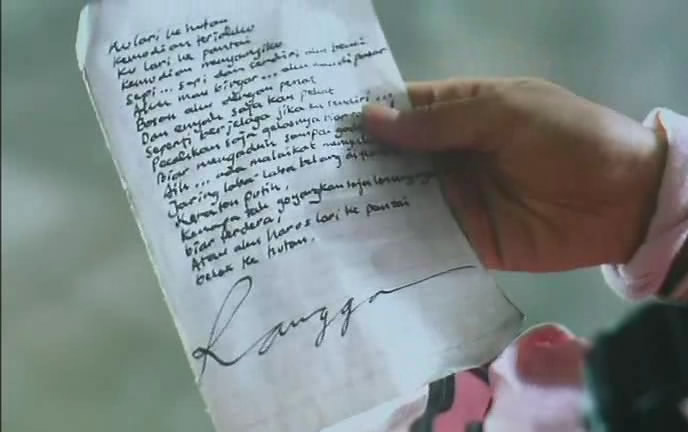 Ku lari ke hutan
Kemudian teriakku
Ku lari ke pantai
Kemudian menyanyiku
Sepi... sepi dan sendiri aku benci
Aku mau bingar... aku mau di pasar
Bosan aku dengan penat
Dan enyah saja kau pekat
Seperti berjelaga jika ku sendiri
Pecahkan saja gelasnya biar
Biar mengaduh sampai
Aih... ada malaikat
Jaring laba-laba belang di
Keraton putih.
Kenapa tak goyangkan saja loncengnya
biar terdera,
Atau aku harus lari ke pantai
belok ke hutan.
Rangga